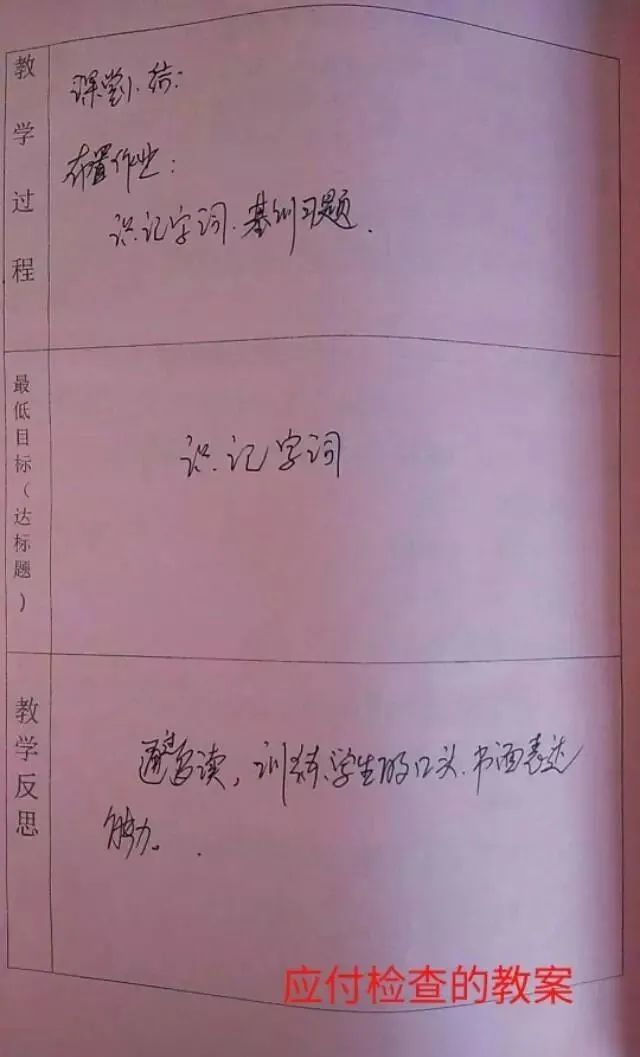 教学过程
课堂小结:
布置作业:
识记字词.基训习题.
最低目标(达标题)
识记字词
教学反思
通过多读,训练学生的口头.书面表达
能力。
应付检查的教案